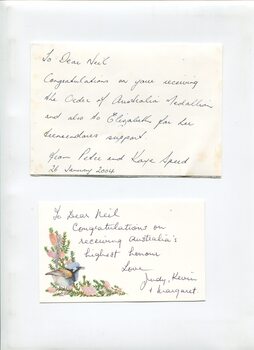 To Dear Neil
Congratulations on your receiving
the Order of Australia Medallion
and also to Elizabeth for her
tremendous support.
From Peter and Kaye Speed
26 January 2004
To Dear Neil
Congratulations on
receiving Australia's
highest honour
Love
Judy, Kevin
+ Margaret